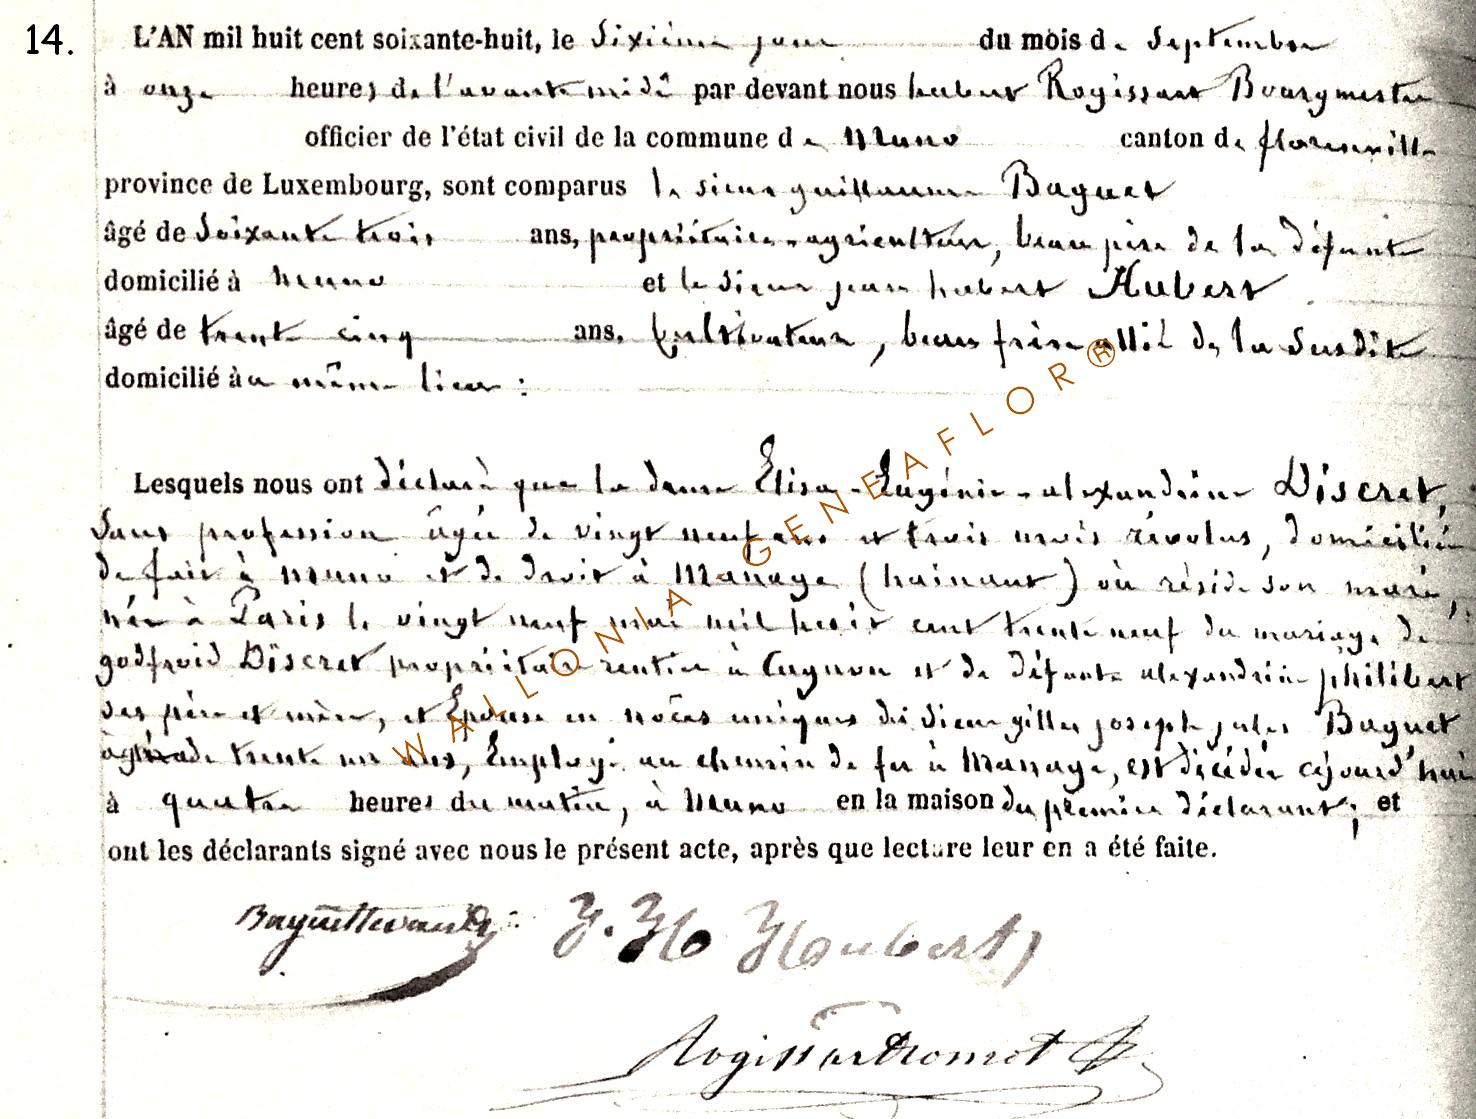 14. L'AN mil huit cent soixante-huit, le Sixième jour du mois de Septembre
à onze heures de l'avant midi par devant nous hubert Rogissart Bourgmestre
officier de l'état civil de la commune de Muno canton de florenville
province de Luxembourg, sont comparus le sieur guillaume Baguet
âgé de Soixante trois ans, propriétaire-agriculteur, beau père de la défunte
domicilié à Muno et le Sieur jean hubert Hubert
âgé de trente cinq ans, Cultivateur, beau frère allié de la Susdite
domicilié à au même lieu :
Lesquels nous ont déclaré que la dame Elisa-Eugénie-alexandrine Discret,
Sans profession âgée de vingt neuf ans et trois mois révolus, domiciliée
de fait à Muno et de droit à Manage (hainaut) où réside son mari,
née à Paris le vingt neuf mai mil huit cent trente neuf du mariage de
godfroid Discret propriétaire rentier à Cugnon et de défunte alexandrine philibert
ses père et mère, et Epouse en nôces uniques du Sieur gilles joseph jules Baguet
âgé de trente un ans, Employé au chemin de fer à Manage, est décédée cejourd'hui
à quatre heures du matin, à Muno en la maison du premier déclarant; et
ont les déclarants signé avec nous le présent acte, après que lecture leur en a été faite.
J. H Houbert
WALLONIA GENEAFLOR®